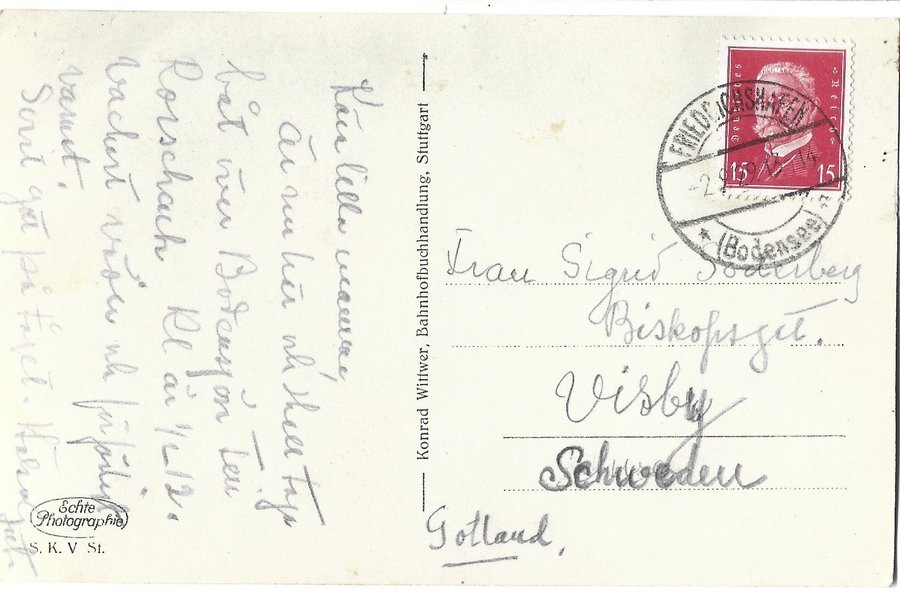 Kära lilla mamma,
är nu här och skall taga
båt över Bodensjön till
Rorschach Kl är 1/2 12.
Vackert väder och
varmt.
Sent gå på tåget. Hälsa
Konrad Wittwer, Bahnhofbuchhandlung, Stuttgart
Echte
Photographie
S. K. V St.
Deutsches Reich
15 15
FRIEDRICHSHAFEN
(Bodensee)
Frau Sigrid Söderberg
Biskopsgat.
Visby
Schweden
Gotland,